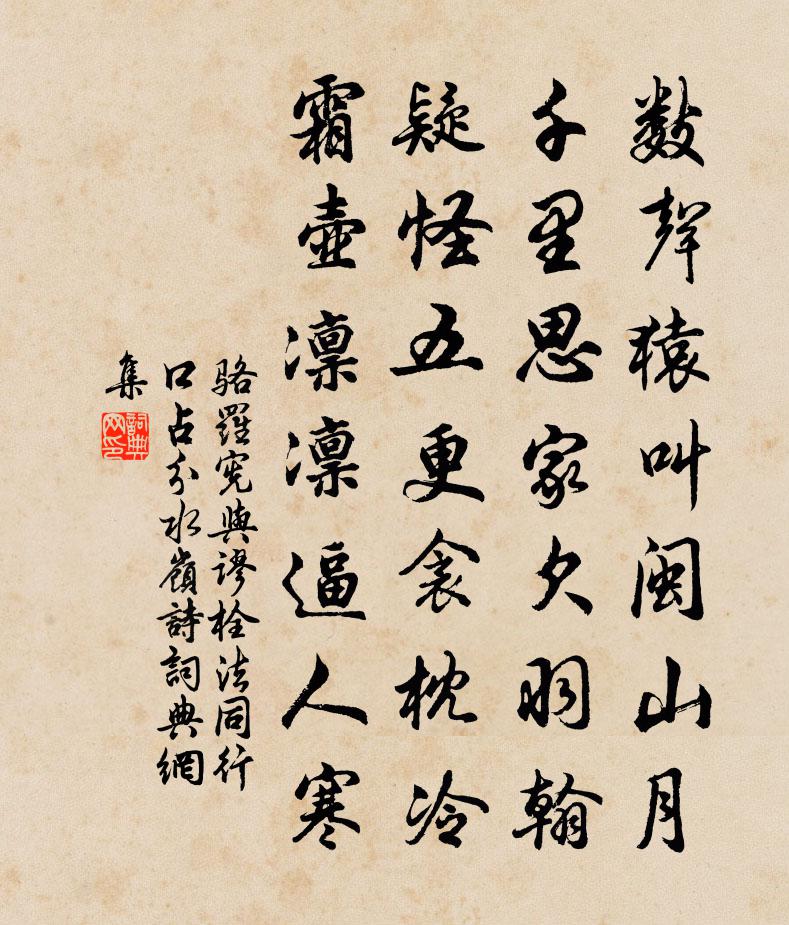 數聲猿叫閩山月
千里思家欠羽翰
疑怪五更衾枕冷
霜壺凛凛逼人寒
駱羅憲與謬栓法同行
口占分水嶺詩詞典網
集
詞典網印